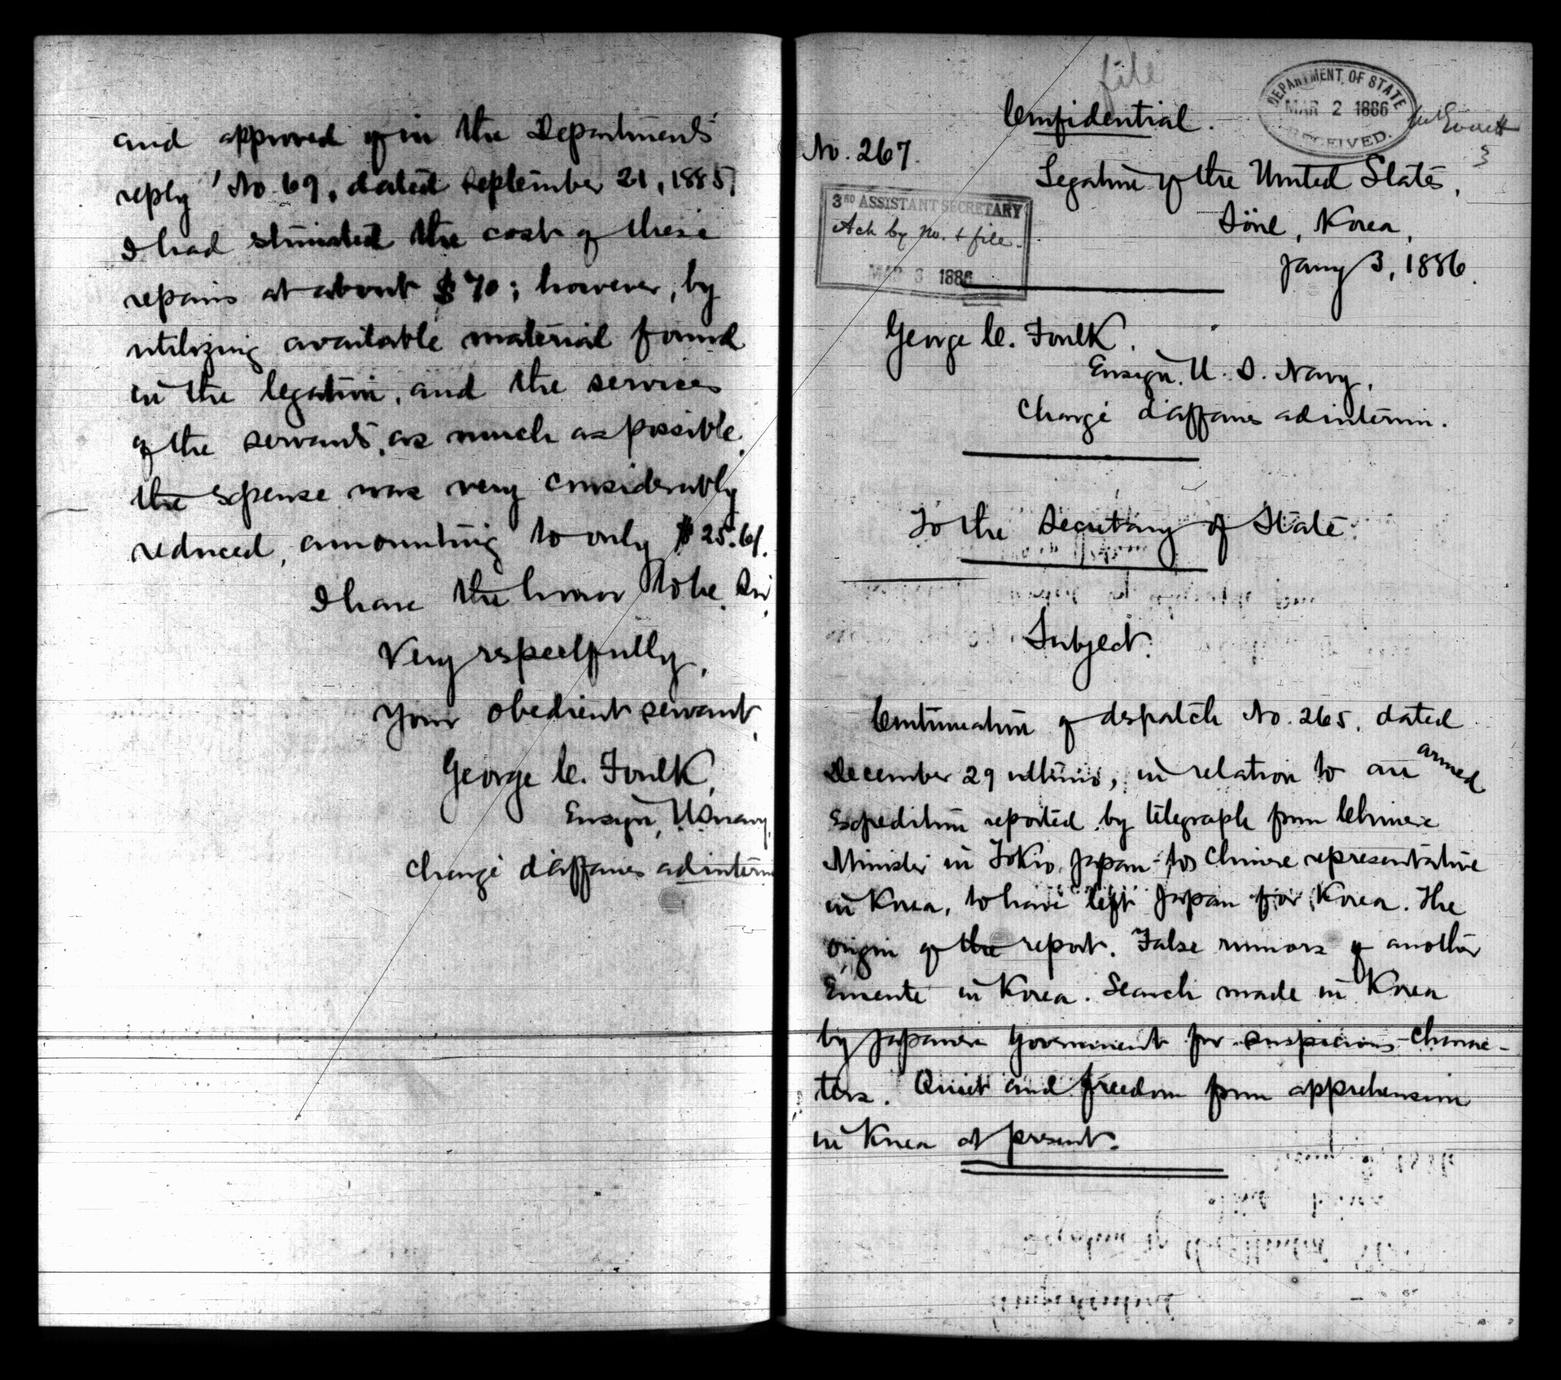 and approved of in the Department's
reply No. 69, dated September 21, 1885,
I had stimated the cost of these
repairs at about $70; however, by
utilizing available material found
in the legation, and the services
of the servants, as much as possible,
the expense was very considerably
reduced, amounting to only $25.61.
I have the honor to be, Sir,
Very respectfully,
Your obedient servant,
George C. Foulk,
Ensign, U.S. Navy,
Chargé d'affaires ad interim
file
Confidential.
DEPARTMENT OF STATE
MAR 2 1886
RECEIVED.
No. 267.
Legation of the United States,
Söul, Korea,
Jany 3, 1886.
3RD ASSISTANT SECRETARY
Ack by No. & file.
MAR 3 1886
George C. Foulk,
Ensign, U.S. Navy,
Chargé d'affaires ad interim.
To the Secretary of State.
Subject.
Continuation of despatch No. 265, dated
December 29 ultimo, in relation to an armed
Expedition reported by telegraph from Chinese
Minister in Tokio, Japan to Chinese representative
in Korea, to have left Japan for Korea. The
origin of the report. False rumors of another
Emeute in Korea. Search made in Korea
by Japanese Government for suspicious charac-
ters. Quiet and freedom from apprehension
in Korea at present.